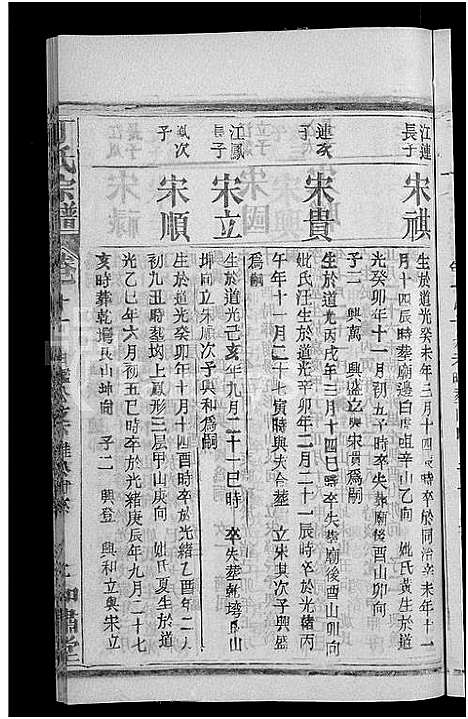 江連
長子
宋祺
生於道光癸未年三月十四 時卒於同治辛未年十一
月十四辰時葬廟邊白 辛山乙向 妣氏黃生於道
光癸卯年十一月初五子時卒失葬廟後酉山卯向
子二 興萬 興盛立與宋貴為嗣
連亥
子
宋貴
生於道光丙戌年三月十四巳時卒失葬廟後酉山卯向
妣氏汪生於道光癸卯年二月二十一辰時卒於光緒丙
午年十一月二十七寅時與夫合葬 立宋其次子興盛
為嗣
江鳳
長子
宋立
生於道光己亥年九月二十一巳時 卒失葬乾塆艮山
坤向立宋順次子興和為嗣
鳳次
子
宋順
生於道光癸卯年十月十四酉時卒於光緒乙酉年二月
初九丑時葬均上鳳形三層甲山庚向 妣氏夏生於道
光乙巳年六月初五巳時卒於光緒庚辰年九月二十七
亥時葬乾塆艮山坤向 子二 興登 興和立與宋立
丁氏宗譜
卷二十一